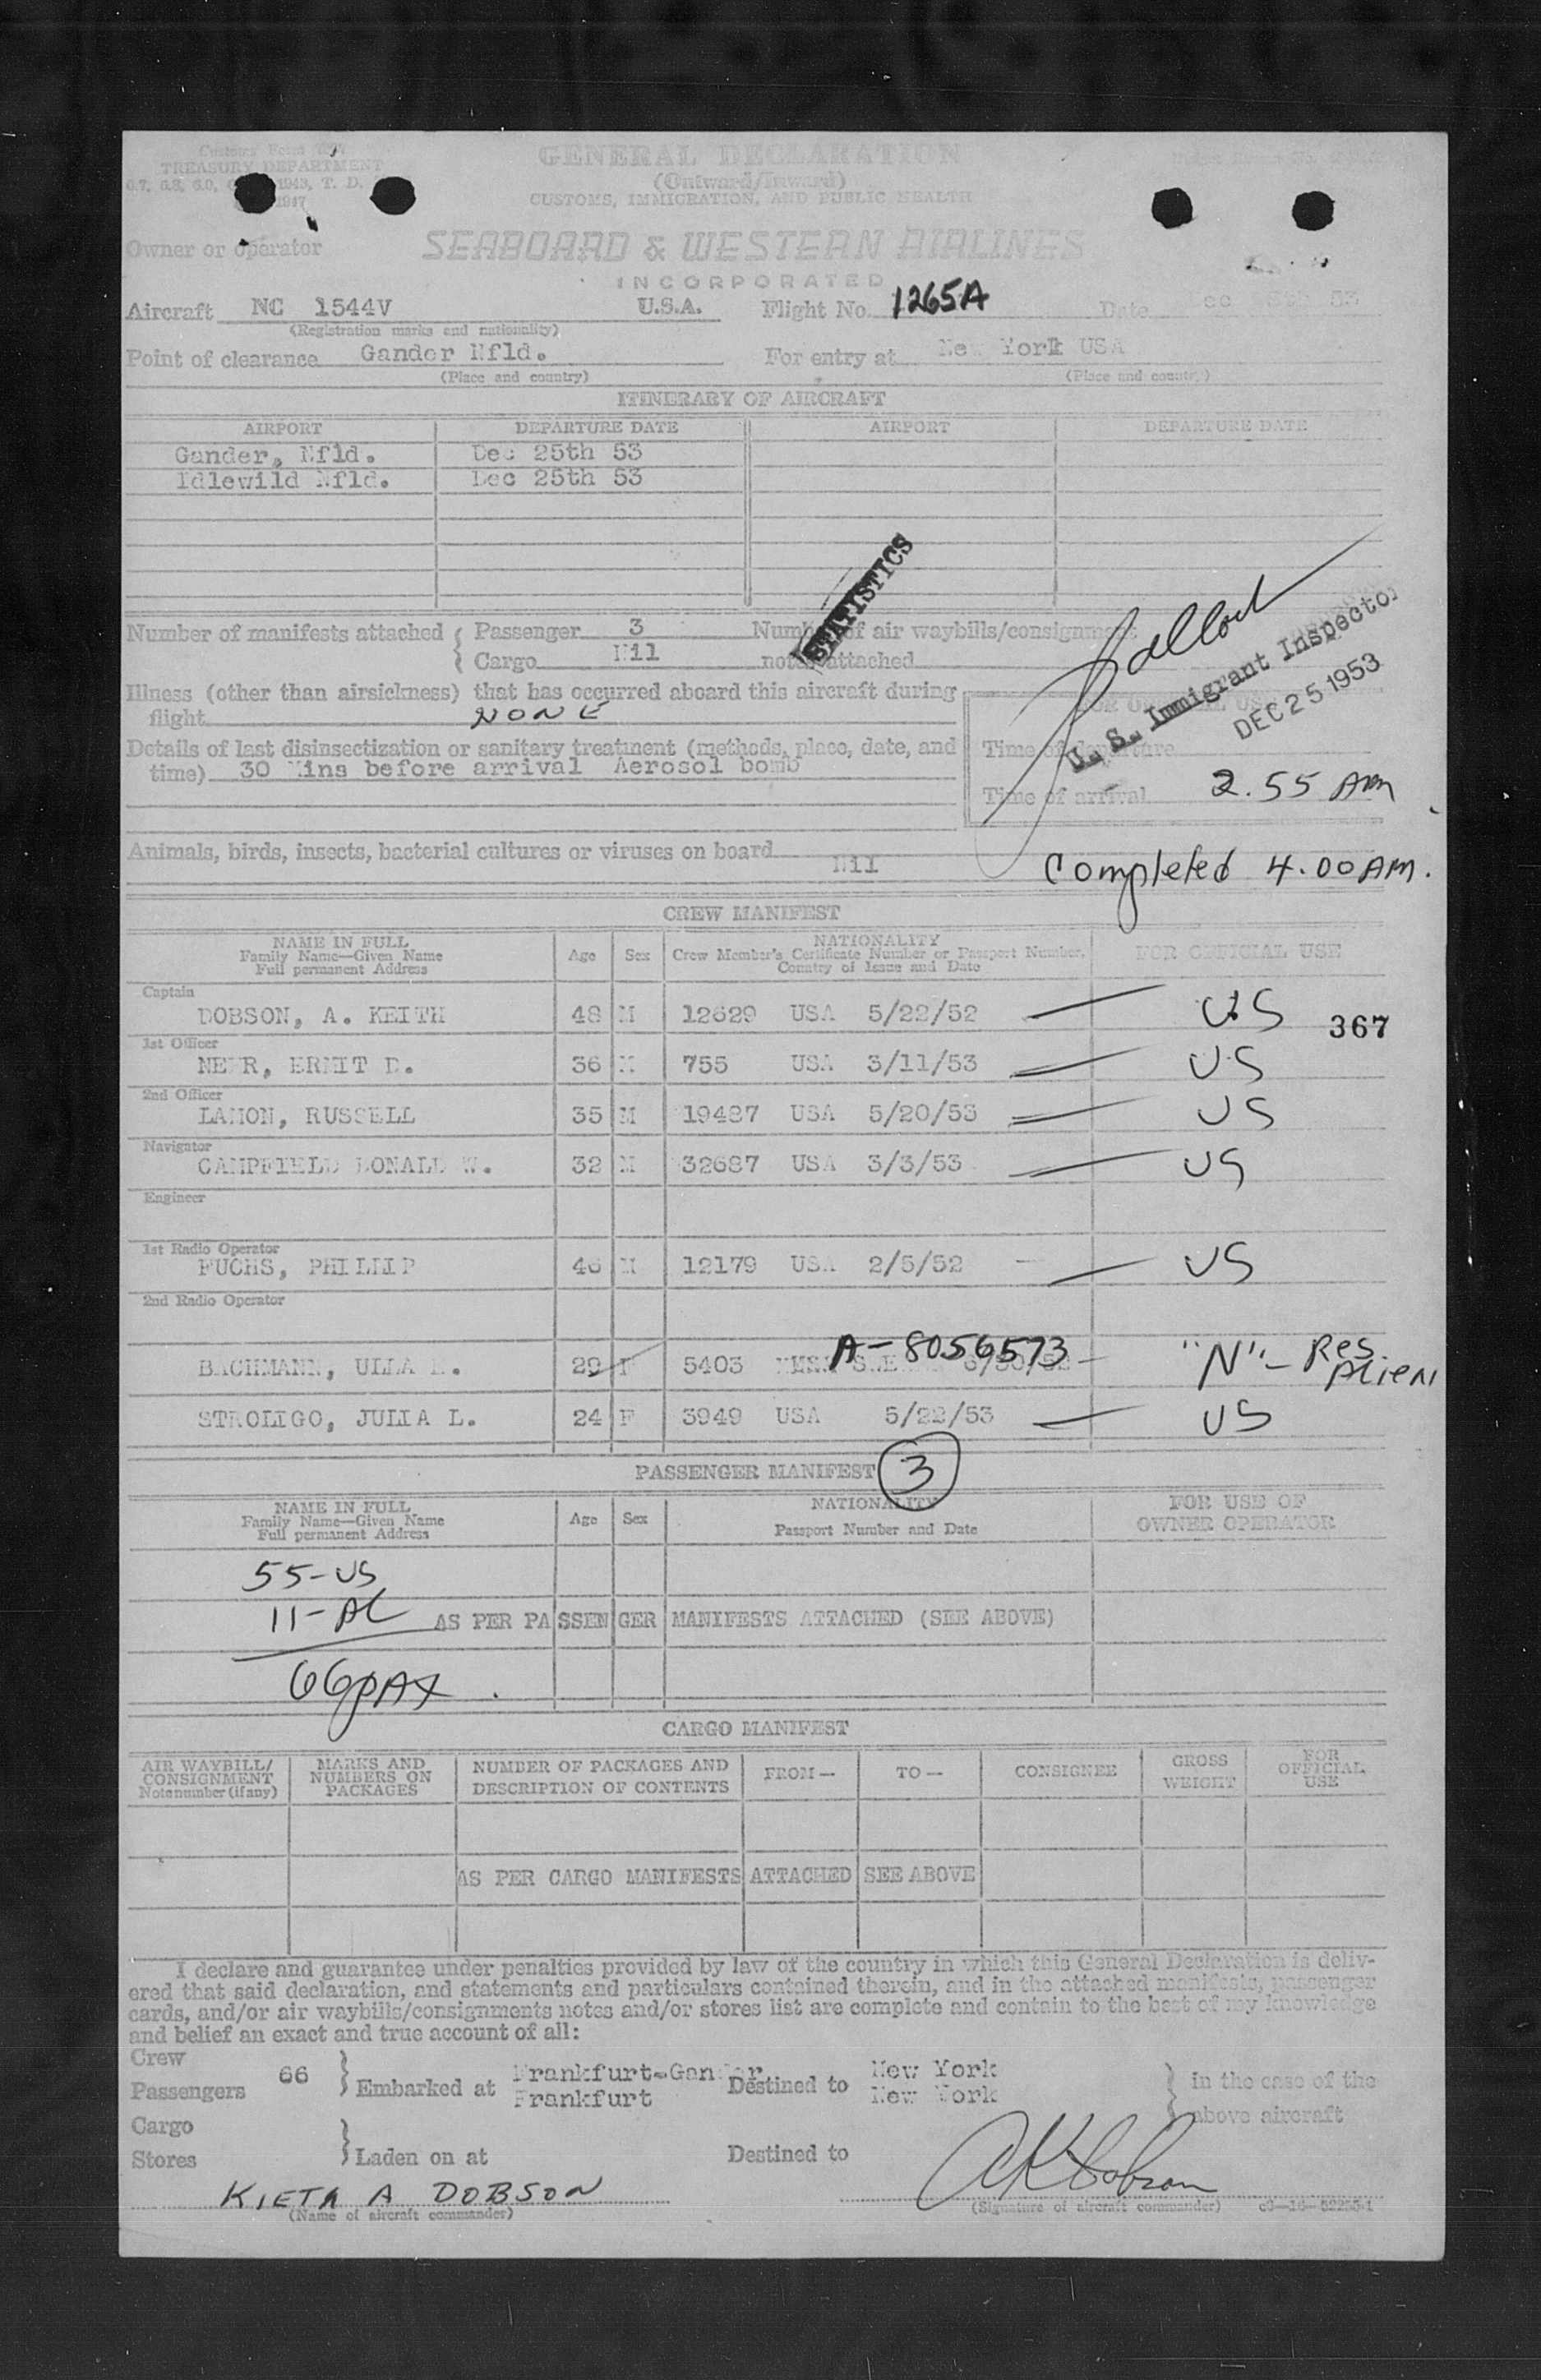 Customs Form
TREASURY DEPARTMENT
6.7, 6.8, 6.9, 1943, T. D.
1947
GENERAL DECLARATION
(Outward/Inward)
CUSTOMS, IMMIGRATION, AND PUBLIC HEALTH
Owner or operator SEABOARD & WESTERN AIRLINES
INCORPORATED
Aircraft NC 1544V U.S.A. Flight No. 1265A Date Dec 53
(Registration marks and nationality)
Point of clearance Gander Nfld. For entry at New York USA
(Place and country) (Place and country)
ITINERARY OF AIRCRAFT
AIRPORT DEPARTURE DATE AIRPORT DEPARTURE DATE
Gander, Nfld. Dec 25th 53
Idlewild Nfld. Dec 25th 53
STATISTICS
Number of manifests attached { Passenger 3 Number of air waybills/consignment
Cargo Nil notes attached
Illness (other than airsickness) that has occurred aboard this aircraft during
flight NONE
FOR OFFICIAL USE
U. S. Immigrant Inspector
DEC 25 1953
Details of last disinsectization or sanitary treatment (methods, place, date, and
time) 30 Mins before arrival Aerosol bomb
Time of departure
Time of arrival 2.55 AM
Animals, birds, insects, bacterial cultures or viruses on board Nil
Completed 4.00 AM.
CREW MANIFEST
NAME IN FULL
Family Name—Given Name
Full permanent Address
Age Sex
NATIONALITY
Crew Member's Certificate Number or Passport Number,
Country of Issue and Date
FOR OFFICIAL USE
Captain
DOBSON, A. KEITH 48 M 12629 USA 5/22/52 US 367
1st Officer
ERMIT D. 36 M 755 USA 3/11/53 US
2nd Officer
LAMON, RUSSELL 35 M 19487 USA 5/20/53 US
Navigator
CAMPFIELD DONALD W. 32 M 32687 USA 3/3/53 US
Engineer
1st Radio Operator
FUCHS, PHILLIP 46 M 12179 USA 2/5/52 US
2nd Radio Operator
BACHMANN, ULLA 29 F 5403 A-8056573 "N"- Res. Alien
STROLIGO, JULIA L. 24 F 3949 USA 5/22/53 US
PASSENGER MANIFEST 3
NAME IN FULL
Family Name—Given Name
Full permanent Address
Age Sex
NATIONALITY
Passport Number and Date
FOR USE OF
OWNER OPERATOR
55-US
11-AL AS PER PASSENGER MANIFESTS ATTACHED (SEE ABOVE)
66 PAX.
CARGO MANIFEST
AIR WAYBILL/
CONSIGNMENT
Note number (if any)
MARKS AND
NUMBERS ON
PACKAGES
NUMBER OF PACKAGES AND
DESCRIPTION OF CONTENTS
FROM—
TO—
CONSIGNEE
GROSS
WEIGHT
FOR
OFFICIAL
USE
AS PER CARGO MANIFESTS ATTACHED SEE ABOVE
I declare and guarantee under penalties provided by law of the country in which this General Declaration is deliv-
ered that said declaration, and statements and particulars contained therein, and in the attached manifests, passenger
cards, and/or air waybills/consignments notes and/or stores list are complete and contain to the best of my knowledge
and belief an exact and true account of all:
Crew Frankfurt-Gander New York
Passengers 66 } Embarked at Frankfurt Destined to New York } in the case of the
above aircraft
Cargo
Stores } Laden on at Destined to
KIETH A DOBSON AKDobson
(Name of aircraft commander) (Signature of aircraft commander)